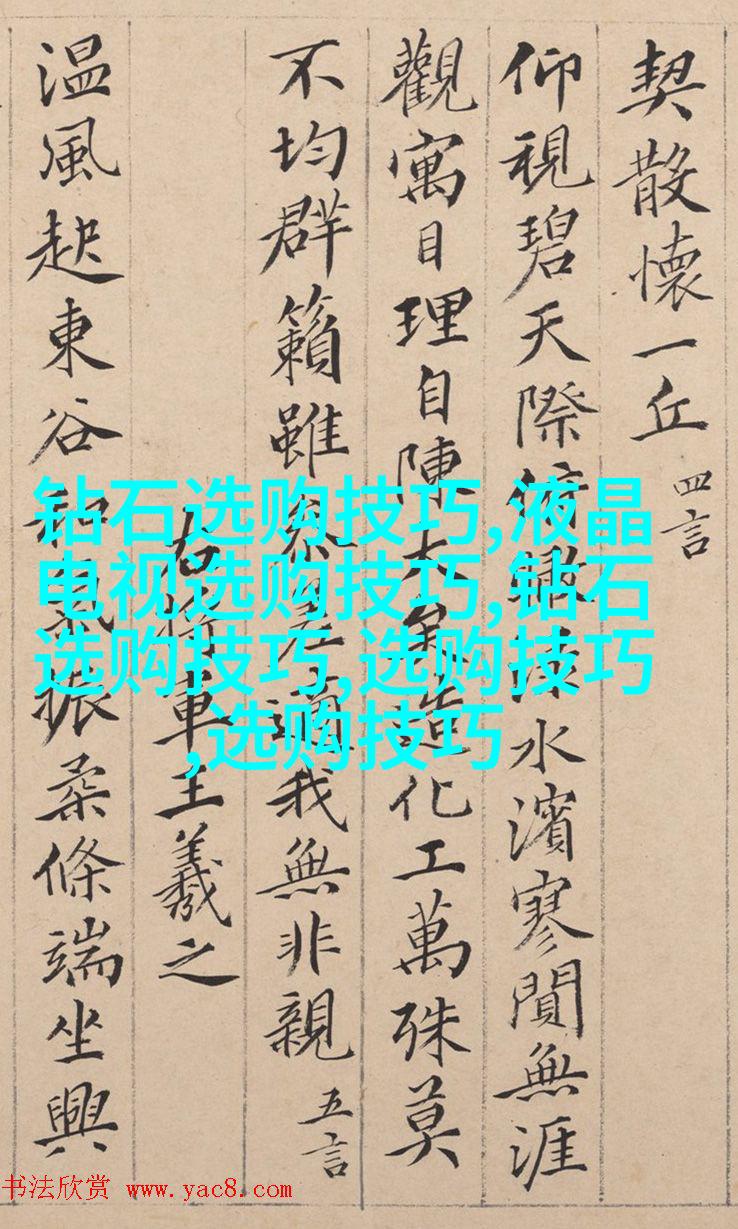 契散懷一丘 四言
仰視碧天際俯瞰淥水濱寥閴無涯
觀寓目理自陳大矣造化工萬殊莫
不均群籟雖參差適我無非親 五言
右將軍王羲之
温風起東谷和氣振柔條端坐興
钻石选购技巧,液晶
电视选购技巧,钻石
选购技巧,选购技巧
,选购技巧
书法欣赏 www.yac8.com